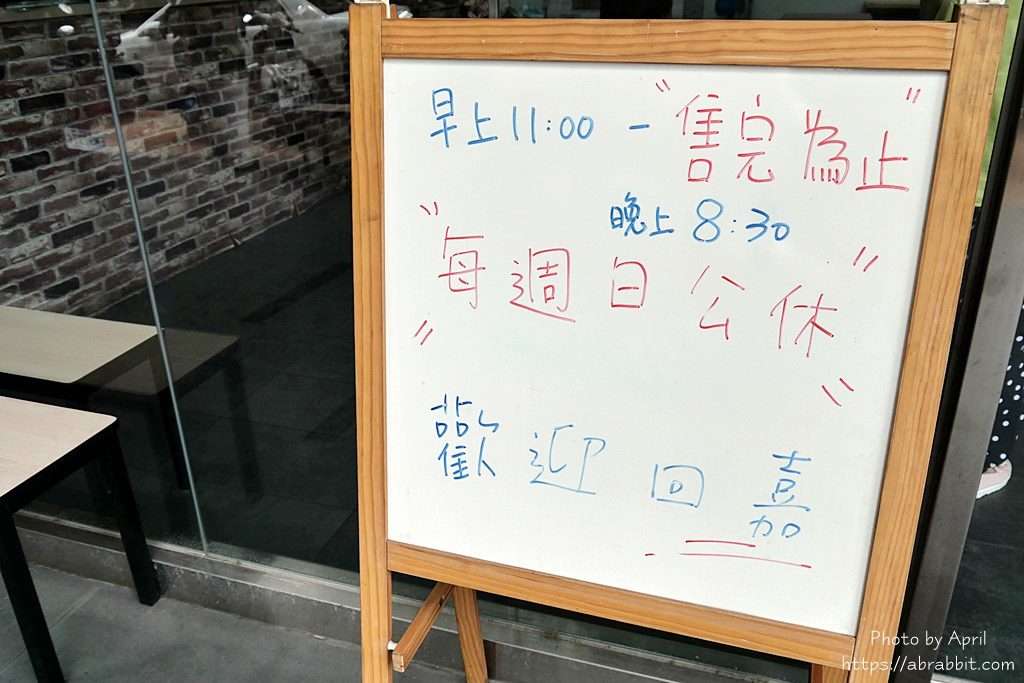 早上11:00 - "售完為止"
晚上8:30
"每週日公休"
歡迎回嘉
Photo by April
https://abrabbit.com